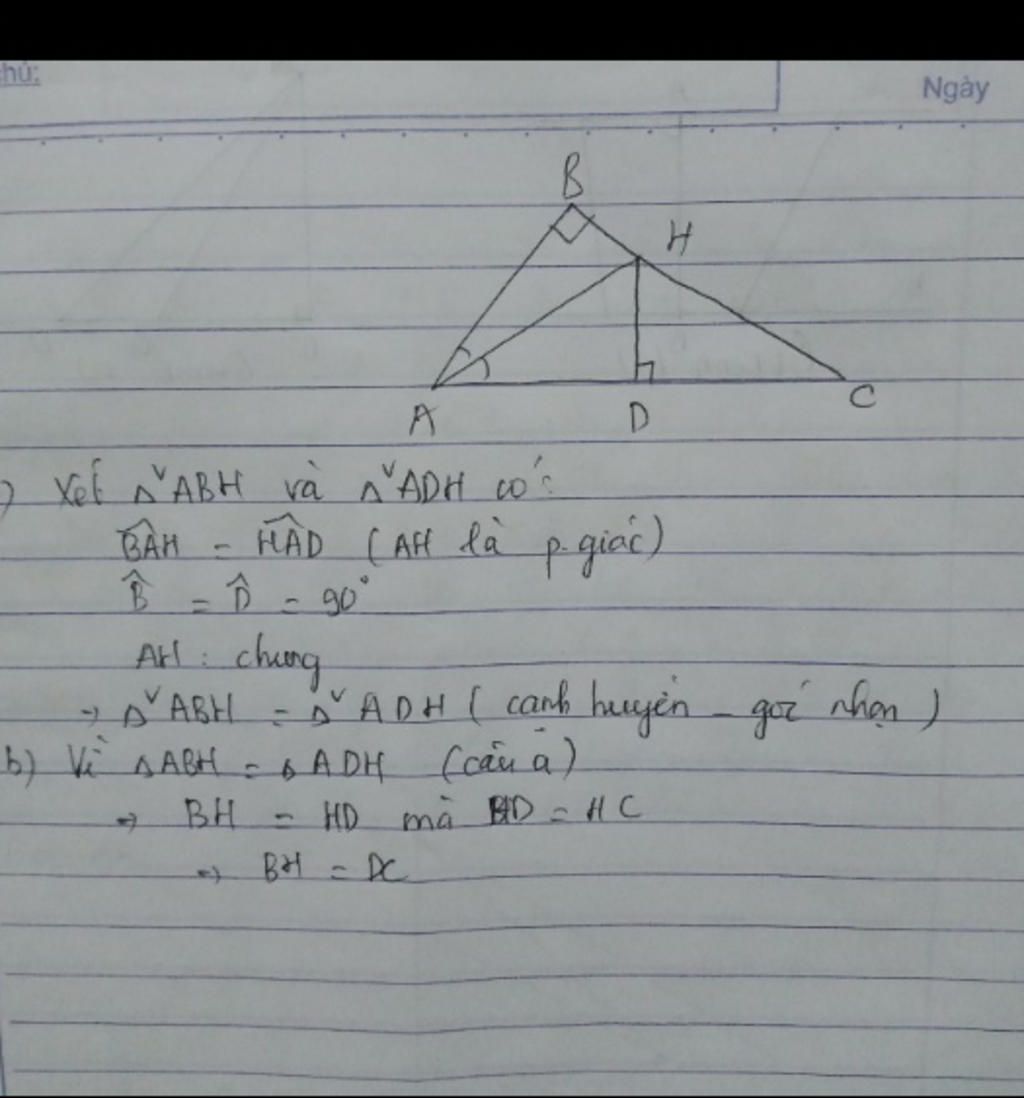 chú:
Ngày
B
H
A
D
C
) Xét Δᵛ ABH và Δᵛ ADH có:
BÂH = HÂD (AH là p.giác)
B̂ = D̂ = 90°
AH : chung
→ Δᵛ ABH = Δᵛ ADH ( cạnh huyền - góc nhọn )
b) Vì ΔABH = ΔADH (câu a)
⇒ BH = HD mà HD = HC
⇒ BH = DC